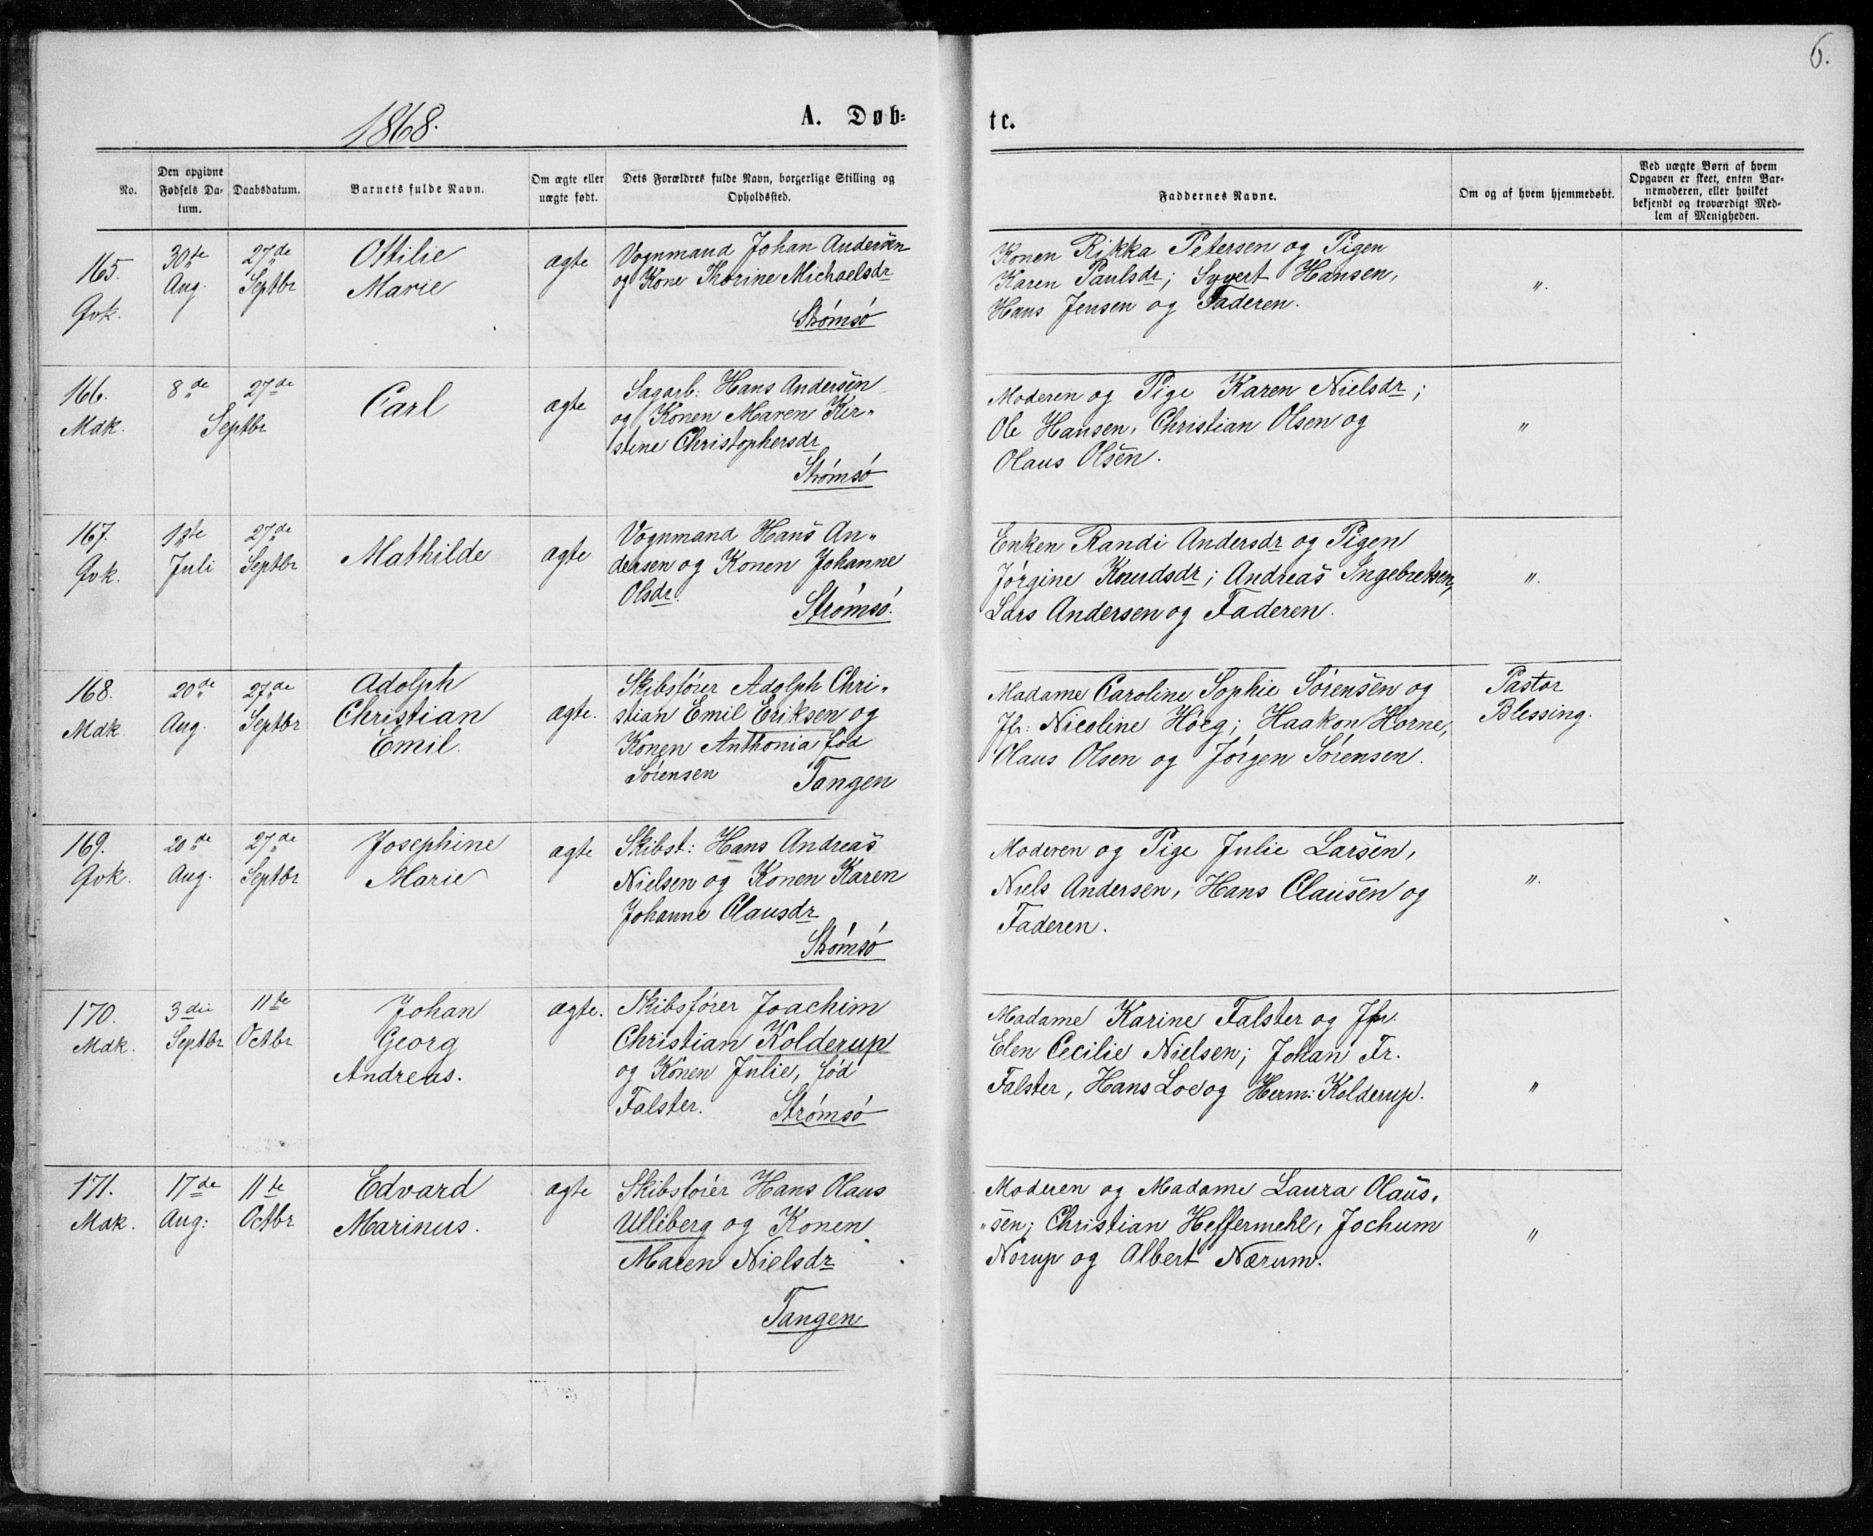 6.
1868.
A. Døb-
te.
No.
Den opgivne Fødsels Da-
tum.
Daabsdatum.
Barnets fulde Navn.
Om ægte eller
uægte født.
Dets Forældres fulde Navn, borgerlige Stilling og
Opholdssted.
Faddernes Navne.
Om og af hvem hjemmedøbt.
Ved uægte Børn af hvem
Opgaven er skeet, enten Bar-
nemoderen, eller hvilket
bekjendt og troværdigt Med-
lem af Menigheden.
165.
Qvk.
30te
Aug.
27de
Septbr
Ottilie
Marie
ægte
Vognmand Johan Andersen
og Kone Thorine Michaelsdr
Strømsø
Konen Rikka Petersen og Pigen
Karen Paulsdr; Syvert Hansen,
Hans Jensen og Faderen.
"
166.
Mdk.
8de
27de
Septbr
Carl
ægte
Sagarb: Hans Andersen
og Konen Maren Kir-
stine Christophersdr
Strømsø
Moderen og Pige Karen Nielsdr;
Ole Hansen, Christian Olsen og
Olaus Olsen.
"
167.
Qvk.
Juli
27de
Septbr
Mathilde
ægte
Vognmand Hans An-
dersen og Konen Johanne
Olsdr.
Strømsø.
Enken Randi Andersdr og Pigen
Jørgine Knudsdr; Andreas Ingebretsen,
Lars Andersen og Faderen.
"
168.
Mdk
20de
Aug.
27de
Septbr
Adolph
Christian
Emil.
ægte.
Skibsfører Adolph Chri-
stian Emil Eriksen og
Konen Anthonia fød
Sørensen
Tangen
Madame Caroline Sophie Sørensen og
Jfr: Nicoline Höeg; Haakon Horne,
Olaus Olsen og Jørgen Sørensen.
Pastor
Blessing.
169.
Qvk.
20de
Aug.
27de
Septbr
Josephine
Marie
ægte
Skibst: Hans Andreas
Nielsen og Konen Karen
Johanne Clausdr
Strømsø
Moderen og Pige Julie Larsen,
Niels Andersen, Hans Clausen og
Faderen.
"
170.
Mdk.
3die
Septbr
11te
Octbr
Johan
Georg
Andreas.
ægte.
Skibsfører Joachim
Christian Kolderup
og Konen Julie, fød
Falster.
Strømsø
Madame Karine Falster og Jfr.
Elen Cecilie Nielsen; Johan Fr.
Falster, Hans Loe og Herm: Kolderup.
"
171.
Mdk.
17de
Aug:
11te
Octbr
Edvard
Marinus.
ægte
Skibsfører Hans Olaus
Ulleberg og Konen
Maren Nielsdr
Tangen
Moderen og Madame Laura Olaus-
sen; Christian Heffermehl, Jochum
Norup og Albert Nærum.
"